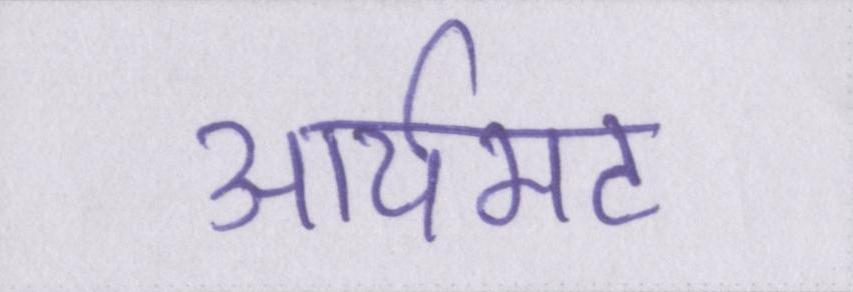 आर्यमट